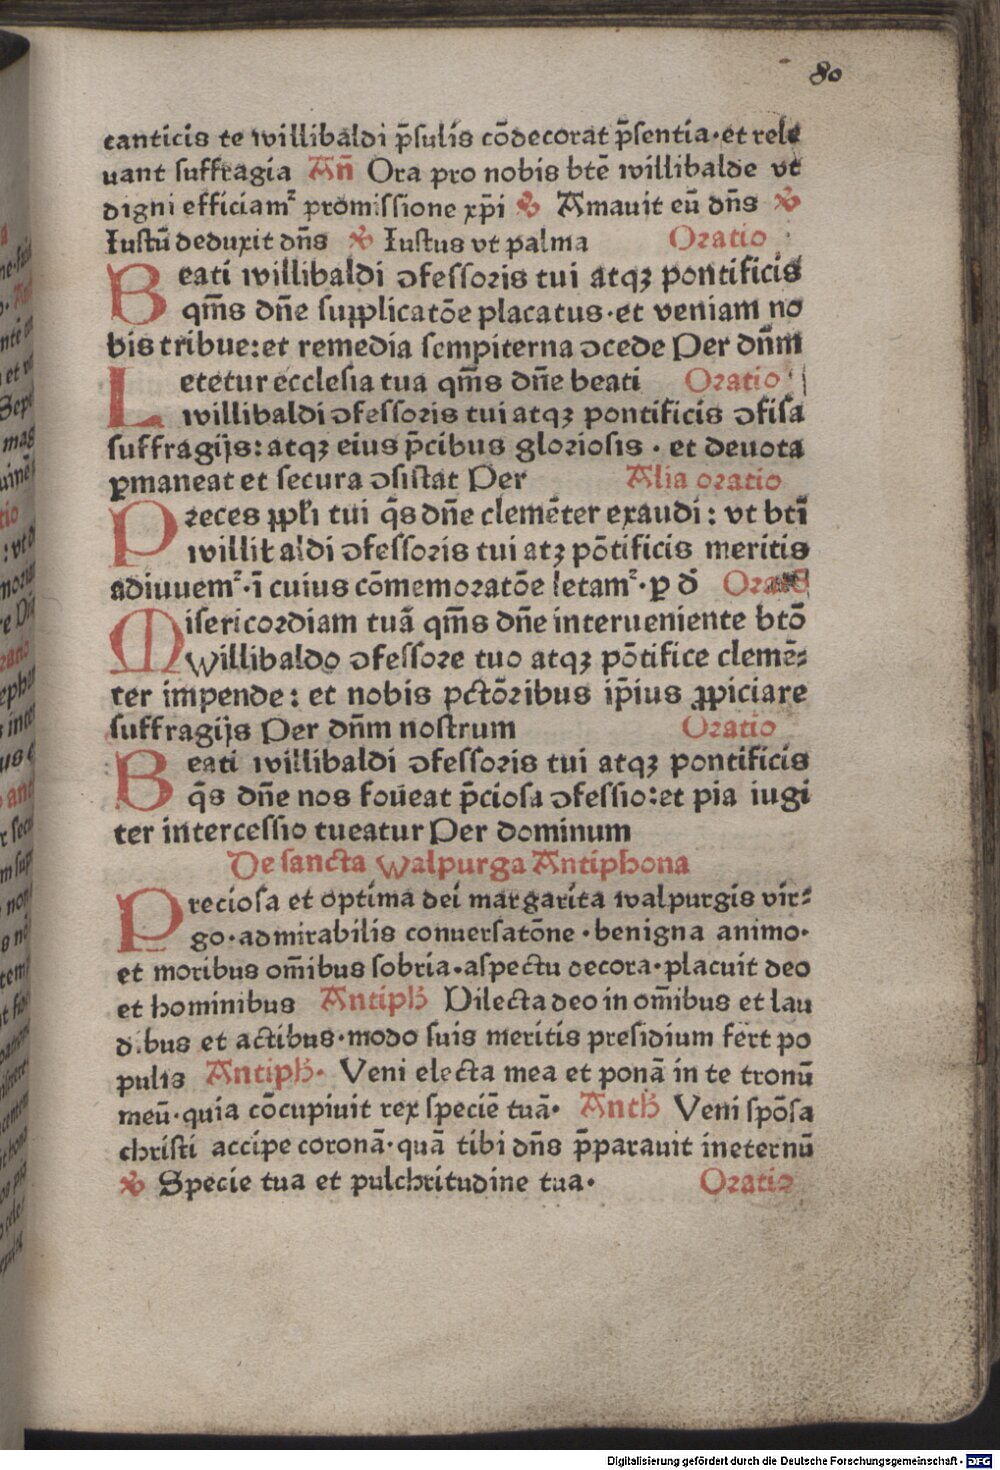 80
canticis te willibaldi p̄sulis cōdecorat p̄sentia·et rele
uant suffragia An̄ Ora pro nobis btē willibalde vt
digni efficiamꝰ promissione xp̄i ℣ Amauit eū dn̄s ℣
Iustū deduxit dn̄s ℣ Iustus vt palma Oratio
Beati willibaldi ꝯfessoris tui atqꝫ pontificis
qm̄s dn̄e supplicatōe placatus·et veniam no
bis tribue:et remedia sempiterna ꝯcede Per dn̄m
Letetur ecclesia tua qm̄s dn̄e beati Oratio
willibaldi ꝯfessoris tui atqꝫ pontificis ꝯfisa
suffragijs:atqꝫ eius p̄cibus gloriosis · et deuota
ꝑmaneat et secura ꝯsistat Per Alia oratio
Preces ꝓpl̄i tui q̄s dn̄e clemēter exaudi: vt bti̅
willibaldi ꝯfessoris tui atꝫ pōtificis meritis
adiuuemꝰ·ī cuius cōmemoratōe letamꝰ·ꝑ d̄
Misericordiam tuā qm̄s dn̄e interueniente btō
willibaldo ꝯfessore tuo atqꝫ pōtifice clemē⸗
ter impende: et nobis pctōribus ip̄ius ꝓpiciare
suffragijs Per dn̄m nostrum Oratio
Beati willibaldi ꝯfessoris tui atqꝫ pontificis
q̄s dn̄e nos foueat p̄ciosa ꝯfessio:et pia iugi
ter intercessio tueatur Per dominum
De sancta walpurga Antiphona
Preciosa et optima dei margarita walpurgis vir⸗
go·admirabilis conuersatōne·benigna animo·
et moribus om̄ibus sobria·aspectu decora·placuit deo
et hominibus Antiph̄ Dilecta deo in om̄ibus et lau
dibus et actibus·modo suis meritis presidium fert po
pulis Antiph̄· Veni electa mea et ponā in te tronū
meū·quia cōcupiuit rex speciē tuā· Anth̄ Veni spōsa
christi accipe coronā·quā tibi dn̄s p̄parauit ineternū
℣ Specie tua et pulchritudine tua· Oratio
Digitalisierung gefördert durch die Deutsche Forschungsgemeinschaft - DFG